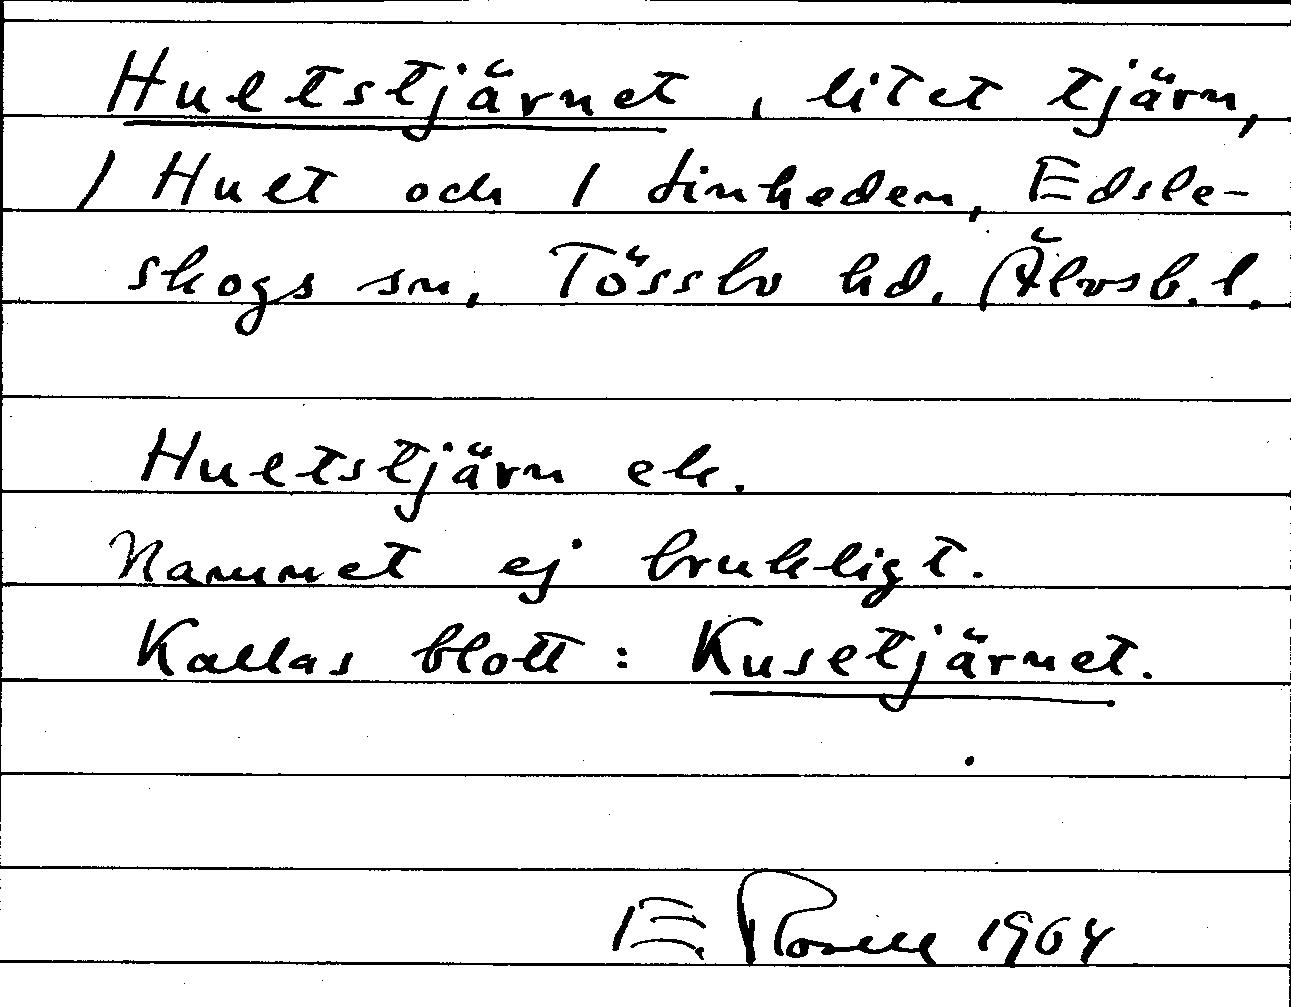 Hultstjärnet, litet tjärn,
/ Hult och / Linheden, Edsle-
skogs sn, Tössbo hd. Älvsb. l.
Hultstjärn ek.
Namnet ej brukligt.
Kallas blott: Kusetjärnet.
E. Rosell 1964